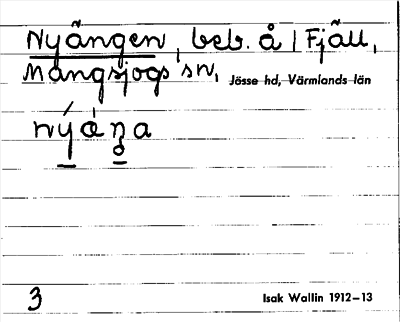 Nyängen, beb. å Fjäll,
Mangskogs sn, Jösse hd, Värmlands län
nýàŋa
3 Isak Wallin 1912–13